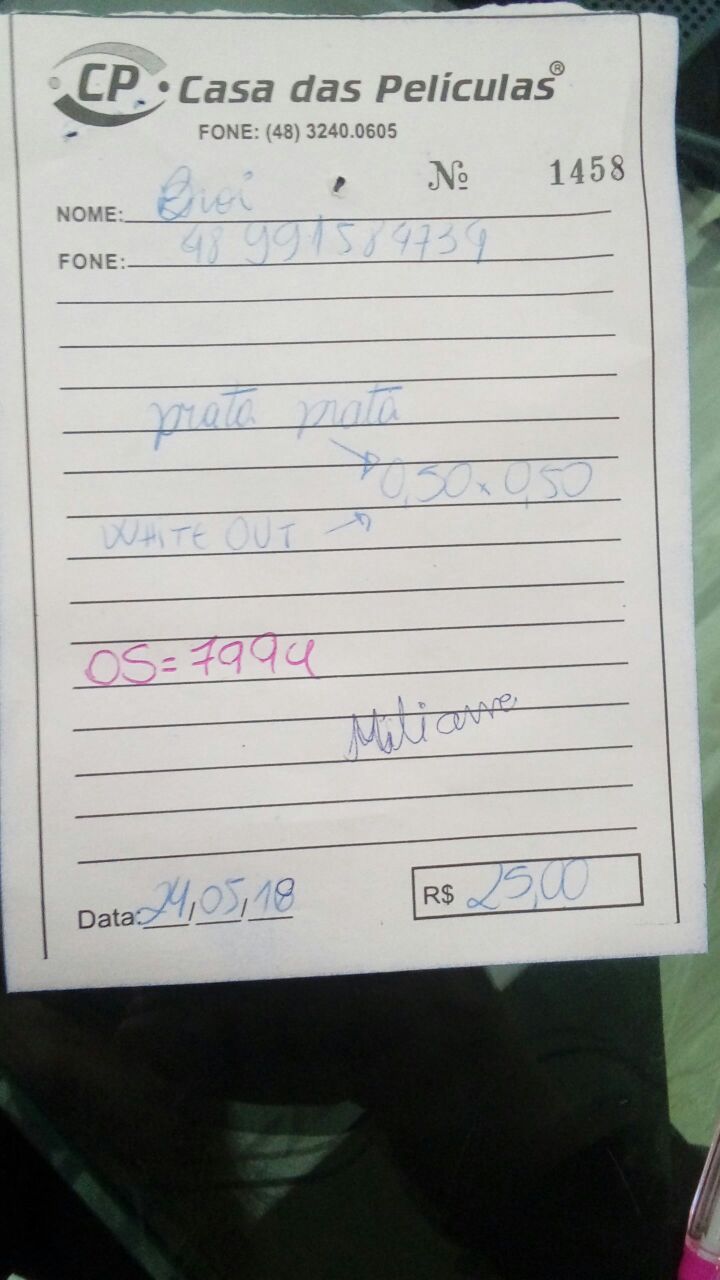 CP Casa das Películas®
FONE: (48) 3240.0605
Nº 1458
NOME:
FONE: 48 991584734
prata prata
0,50 x 0,50
WHITE OUT
OS=7994
Miliane
Data: 24/05/18
R$ 25,00